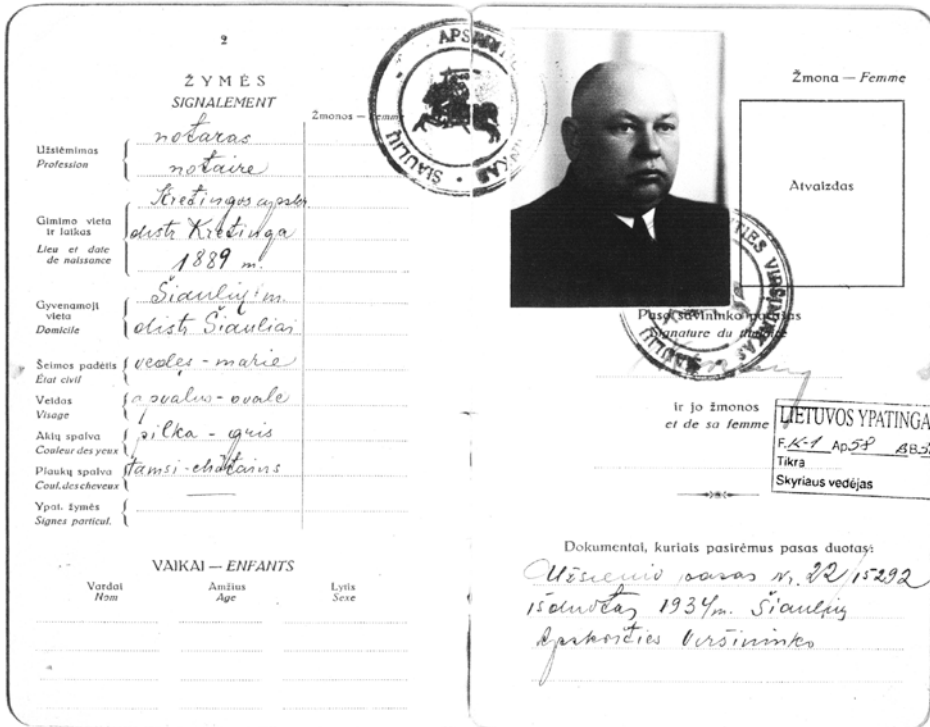 2
ŽYMĖS
SIGNALEMENT
Žmonos — Femme
Užsiėmimas
Profession
notaras
notaire
Gimimo vieta
ir laikas
Lieu et date
de naissance
Kretingos apskr.
distr Kretinga
1889 m.
Gyvenamoji
vieta
Domicile
Šiaulių m.
distr Šiauliai
Šeimos padėtis
État civil
vedęs - marié
Veidas
Visage
apvalus - ovale
Akių spalva
Couleur des yeux
pilka - gris
Plaukų spalva
Coul. des cheveux
tamsi - châtains
Ypat. žymės
Signes particul.
VAIKAI — ENFANTS
Vardai
Nom
Amžius
Age
Lytis
Sexe
ŠIAULIŲ
Žmona — Femme
Atvaizdas
Paso savininko parašas
Signature du titulaire
VIRŠININKAS
ŠIAULIŲ
ir jo žmonos
et de sa femme
LIETUVOS YPATINGA
F. K-1 Ap 58
Tikra
Skyriaus vedėjas
Dokumentai, kuriais pasirėmus pasas duotas:
Užsienio pasas Nr. 22/15292
išduotas 1934 m. Šiaulių
Apskrities Viršininko